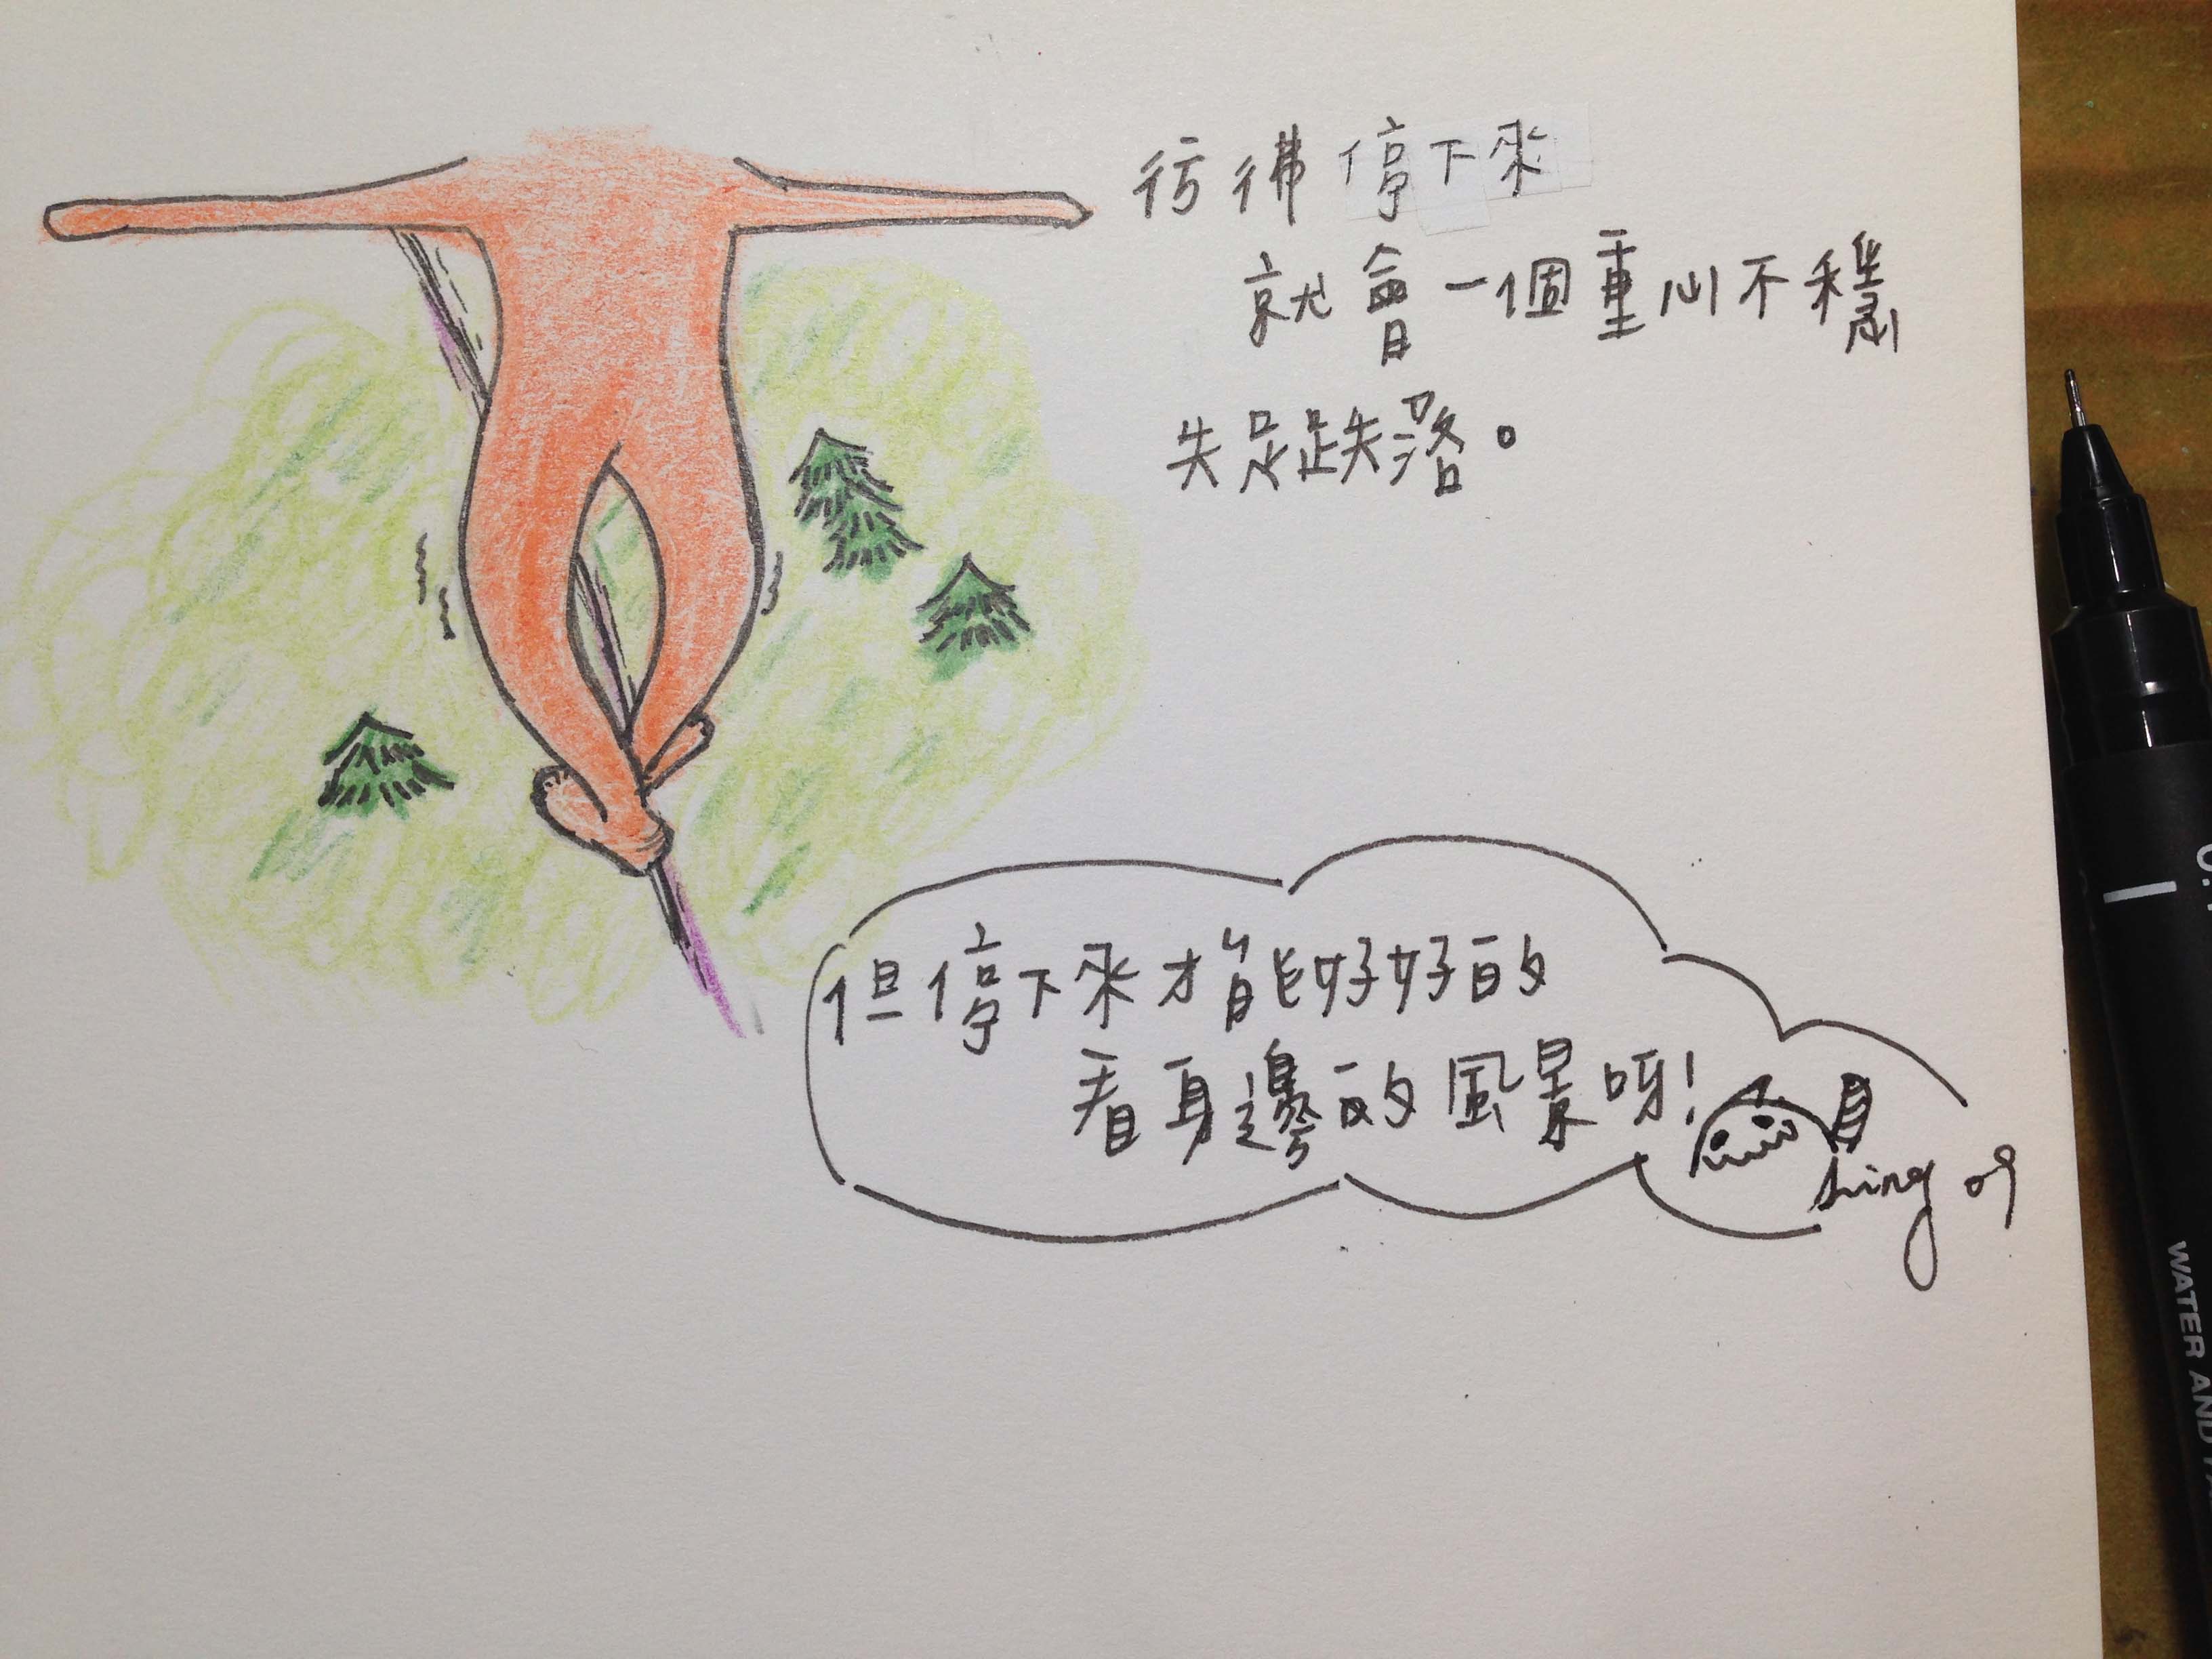 彷彿停下來
就會一個重心不穩
失足跌落。
但停下來才能好好的
看身邊的風景呀!
WATER AND